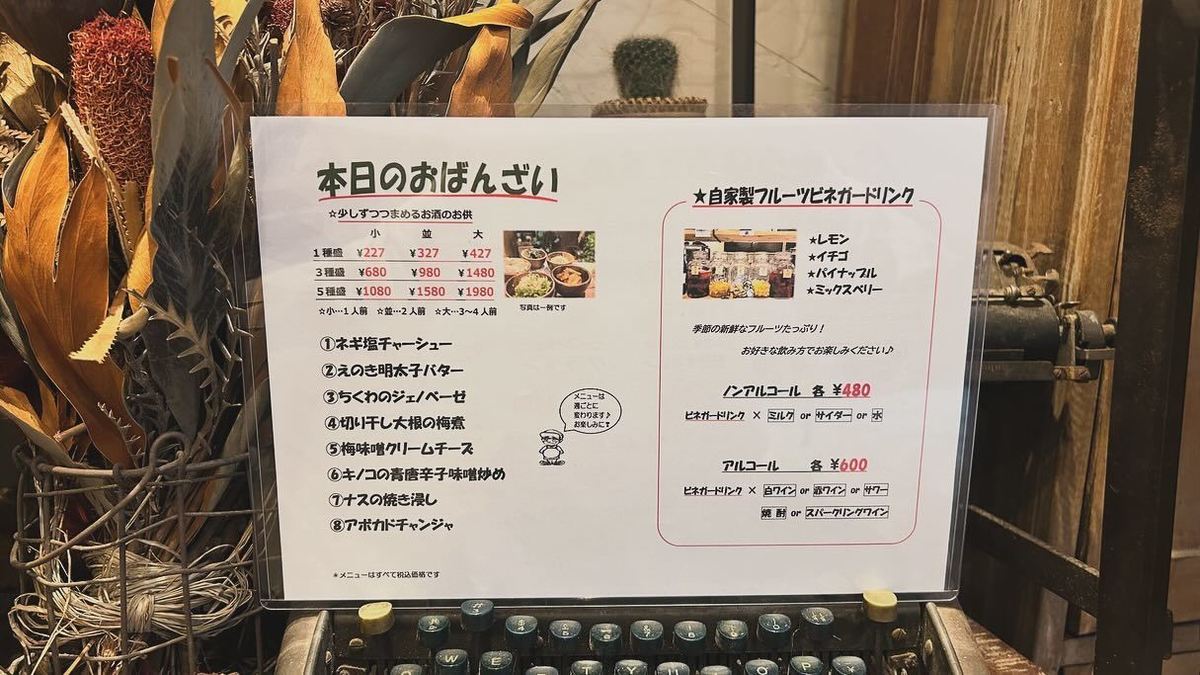 本日のおばんざい
☆少しずつつまめるお酒のお供
小 並 大
1種盛 ¥227 ¥327 ¥427
3種盛 ¥680 ¥980 ¥1480
5種盛 ¥1080 ¥1580 ¥1980
☆小…1人前 ☆並…2人前 ☆大…3～4人前
写真は一例です
①ネギ塩チャーシュー
②えのき明太子バター
③ちくわのジェノベーゼ
④切り干し大根の梅煮
⑤梅味噌クリームチーズ
⑥キノコの青唐辛子味噌炒め
⑦ナスの焼き浸し
⑧アボカドチャンジャ
メニューは
週ごとに
変わります♪
お楽しみに❣
*メニューはすべて税込価格です
★自家製フルーツビネガードリンク
★レモン
★イチゴ
★パイナップル
★ミックスベリー
季節の新鮮なフルーツたっぷり！
お好きな飲み方でお楽しみください♪
ノンアルコール 各 ¥480
ビネガードリンク × ミルク or サイダー or 水
アルコール 各 ¥600
ビネガードリンク × 白ワイン or 赤ワイン or サワー
焼酎 or スパークリングワイン
W E T Y U O P